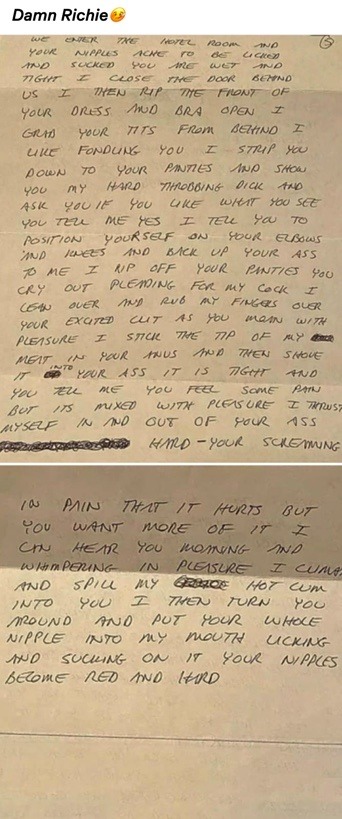 Damn Richie
WE ENTER THE HOTEL ROOM AND
YOUR NIPPLES ACHE TO BE LICKED
AND SUCKED YOU ARE WET AND
TIGHT I CLOSE THE DOOR BEHIND
US I THEN RIP THE FRONT OF
YOUR DRESS AND BRA OPEN I
GRAB YOUR TITS FROM BEHIND I
LIKE FONDLING YOU I STRIP YOU
DOWN TO YOUR PANTIES AND SHOW
YOU MY HARD THROBBING DICK AND
ASK YOU IF YOU LIKE WHAT YOU SEE
YOU TELL ME YES I TELL YOU TO
POSITION YOURSELF ON YOUR ELBOWS
AND KNEES AND BACK UP YOUR ASS
TO ME I RIP OFF YOUR PANTIES YOU
CRY OUT PLEADING FOR MY COCK I
LEAN OVER AND RUB MY FINGERS OVER
YOUR EXCITED CLIT AS YOU MOAN WITH
PLEASURE I STICK THE TIP OF MY
MEAT IN YOUR ANUS AND THEN SHOVE
IT INTO YOUR ASS IT IS TIGHT AND
YOU TELL ME YOU FEEL SOME PAIN
BUT ITS MIXED WITH PLEASURE I THRUST
MYSELF IN AND OUT OF YOUR ASS
HARD - YOUR SCREAMING
IN PAIN THAT IT HURTS BUT
YOU WANT MORE OF IT I
CAN HEAR YOU MOANING AND
WHIMPERING IN PLEASURE I CLIMA
AND SPILL MY HOT CUM
INTO YOU I THEN TURN YOU
AROUND AND PUT YOUR WHOLE
NIPPLE INTO MY MOUTH LICKING
AND SUCKING ON IT YOUR NIPPLES
BECOME RED AND HARD